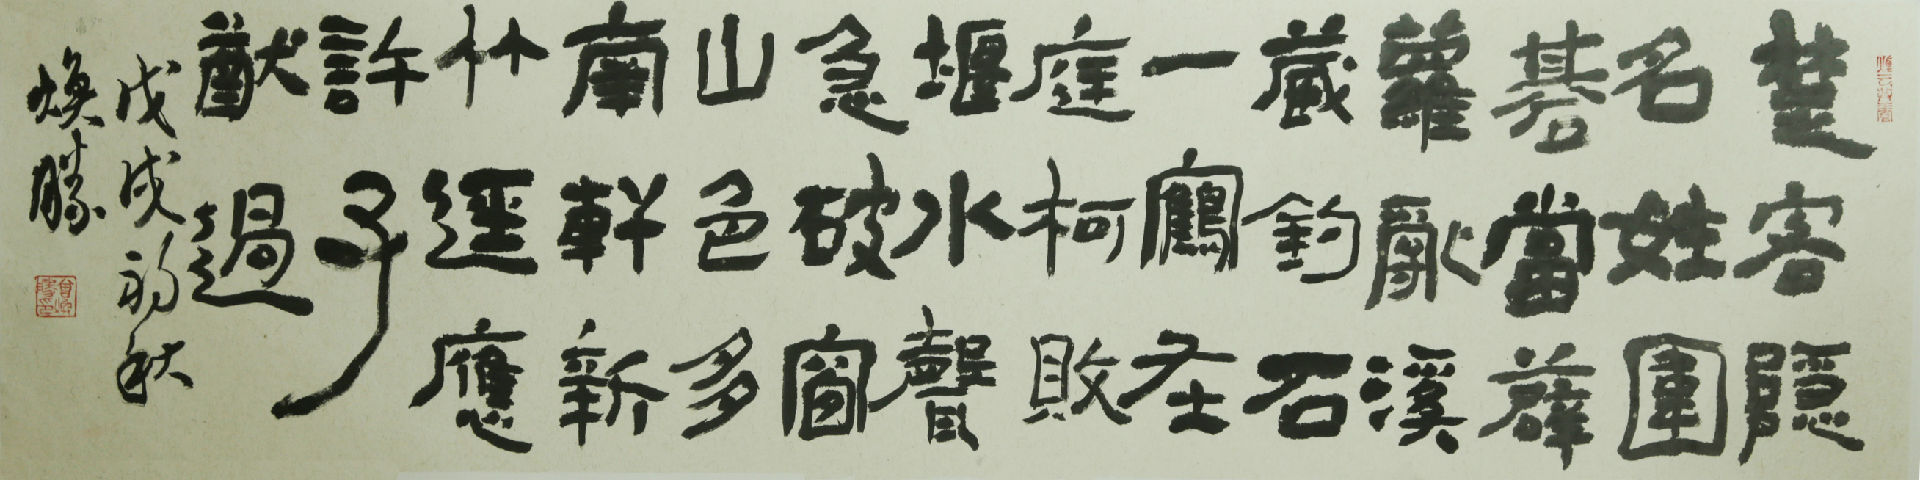 楚客隱
名姓圍
碁當薜
蘿亂溪
藏釣石
一鶴在
庭柯敗
堰水聲
急破窗
山色多
南軒新
竹逕應
許子
猷過
戊戌初秋
煥勝